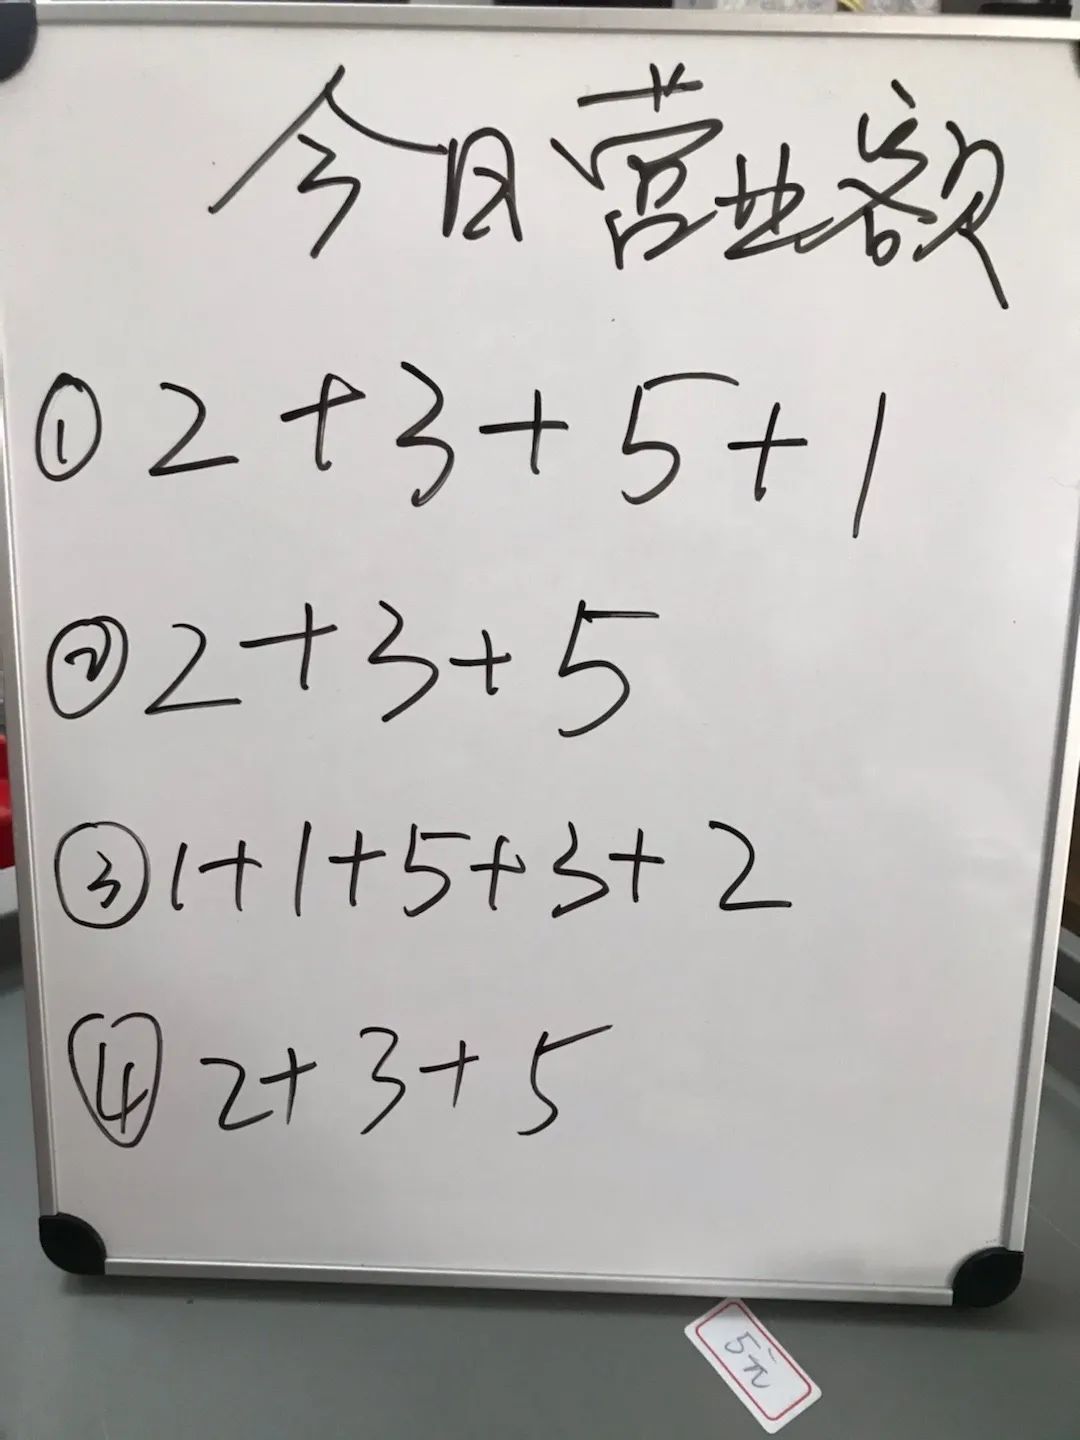 今日营业额
①2+3+5+1
②2+3+5
③1+1+5+3+2
④2+3+5
5元